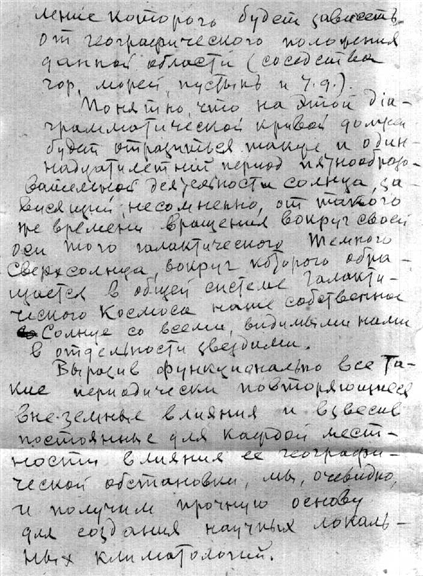 ление которого будет зависеть
от географического положения
данной области (соседства
гор, морей, пустынь и т.д.).
Понятно, что на этой диа-
грамматической кривой должен
будет отразиться также и один-
надцатилетний период пятнообразо-
вательной деятельности солнца, за-
висящий, несомненно, от такого
же времени вращения вокруг своей
оси того галактического темного
Сверхсолнца, вокруг которого обра-
щается в общей системе Галакти-
ческого Космоса наше собственное
Солнце со всеми, видимыми нами
в отдельности звездами.
Выразив функционально все та-
кие периодически повторяющиеся
вне-земные влияния и взвесив
постоянные для каждой мест-
ности влияния ее географи-
ческой обстановки, мы, очевидно,
и получим прочную основу
для создания научных локаль-
ных климатологий.